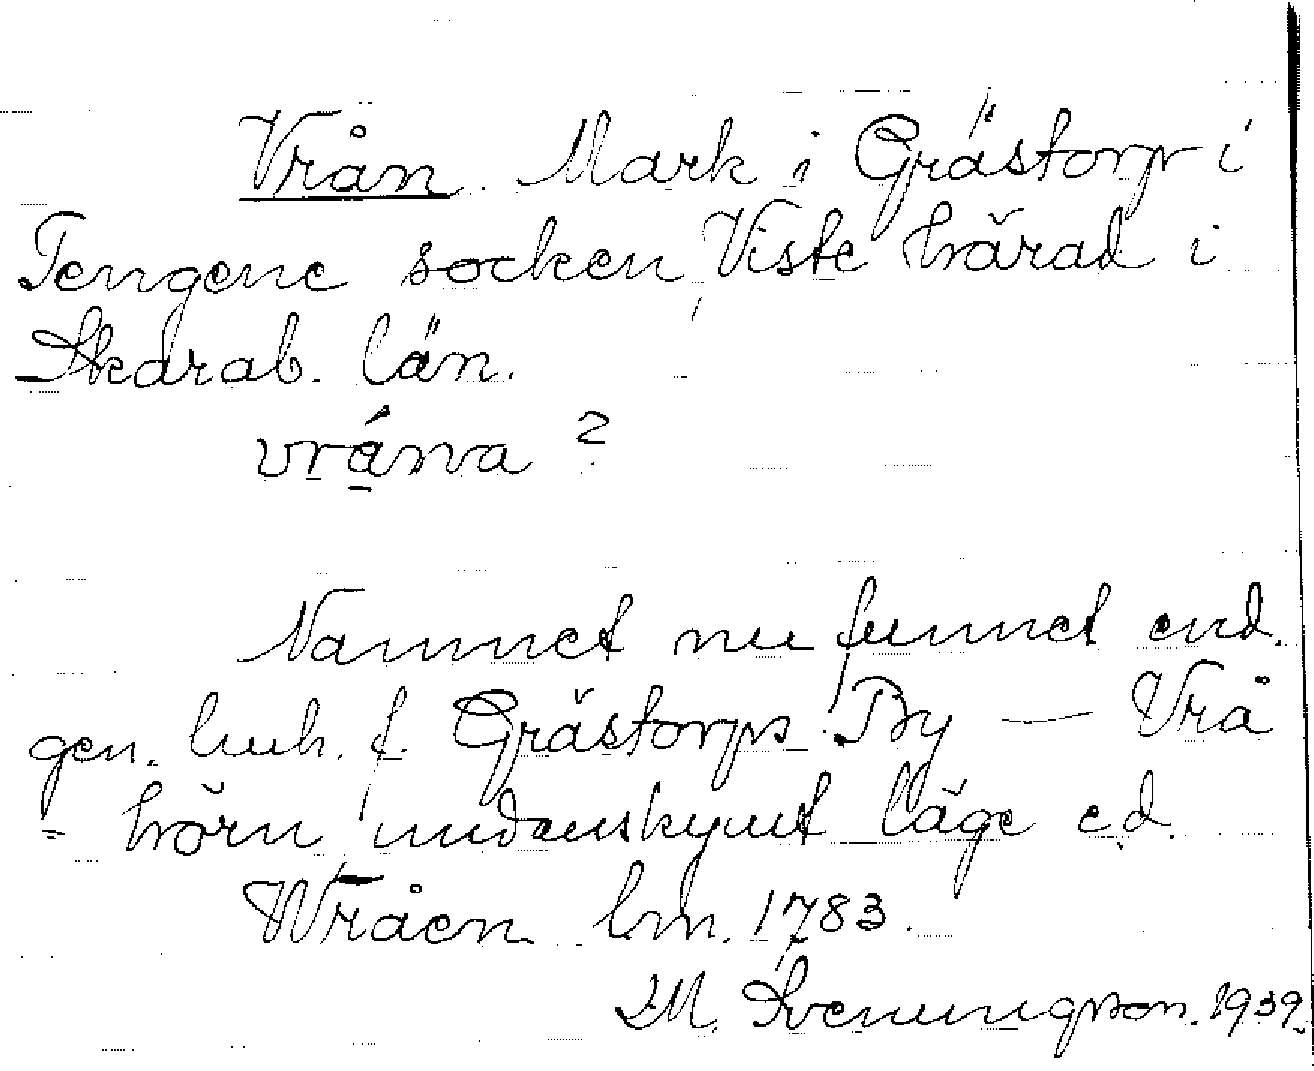 Vrån. Mark i Grästorp i
Tengene socken, Viste härad i
Skarab. län.
vrána ?
Namnet nu funnet end.
gen. lmh. f. Grästorps By — Vrå
= hörn undanskymt läge e.d.
Wråen lm. 1783.
M. Sveningson. 1939.